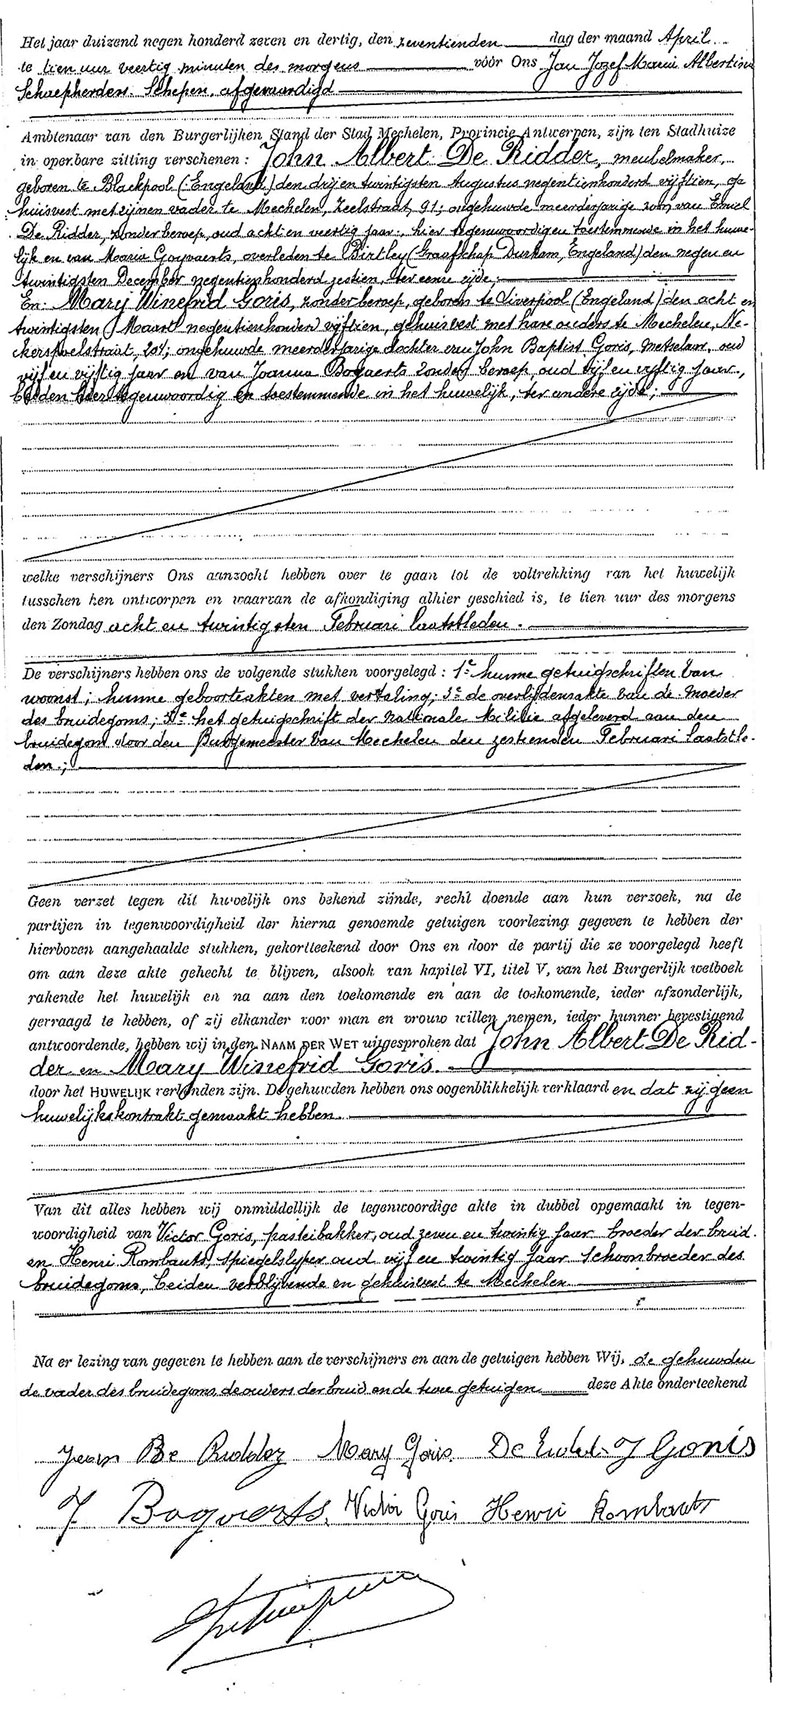 Het jaar duizend negen honderd zeven en dertig, den zeventienden dag der maand April
te tien uur veertig minuten des morgens vóór Ons Jan Jozef Maria Albertine
Schaepherders. Schepen, afgevaardigd
Ambtenaar van den Burgerlijken Stand der Stad Mechelen, Provincie Antwerpen, zijn ten Stadhuize
in openbare zitting verschenen : John Albert De Ridder, meubelmaker,
geboren te Blackpool (Engeland) den drij en twintigsten Augustus negentienhonderd vijftien, ge
huisvest met zijnen vader te Mechelen, Zeelstraat, 91; ongehuwde meerderjarige zoon van
De Ridder, zonder beroep, oud acht en veertig jaar, hier tegenwoordig en toestemmende in het huwe-
lijk en van Maria Goyvaerts, overleden te Birtley (Graafschap Durham, Engeland) den negen en
twintigsten December negentienhonderd zestien, ter eenre zijde;
En: Mary Winefrid Goris, zonder beroep, geboren te Liverpool (Engeland) den acht en
twintigsten Maart negentienhonderd vijftien, gehuisvest met hare ouders te Mechelen, Ne-
ckerspoelstraat, ongehuwde meerderjarige dochter van John Baptist Goris, metselaar, oud
vijf en vijftig jaar en van Joanna Bogaerts zonder beroep oud vijf en vijftig jaar,
beiden hier tegenwoordig en toestemmende in het huwelijk, ter andere zijde;
welke verschijners Ons aanzocht hebben over te gaan tot de voltrekking van het huwelijk
tusschen hen ontworpen en waarvan de afkondiging alhier geschied is, te tien uur des morgens
den Zondag acht en twintigsten Februari laatstleden.
De verschijners hebben ons de volgende stukken voorgelegd : 1e hunne getuigschriften van
woonst; hunne geboorteakten met vertaling; 3e de overlijdensakte van de moeder
des bruidegoms; het getuigschrift der nationale Militie afgeleverd aan den
bruidegom door den Burgemeester van Mechelen den zestienden Februari laatstle-
den.;
Geen verzet tegen dit huwelijk ons bekend zijnde, recht doende aan hun verzoek, na de
partijen in tegenwoordigheid der hierna genoemde getuigen voorlezing gegeven te hebben der
hierboven aangehaalde stukken, gekortteekend door Ons en door de partij die ze voorgelegd heeft
om aan deze akte gehecht te blijven, alsook van kapitel VI, titel V, van het Burgerlijk wetboek
rakende het huwelijk en na aan den toekomende en aan de toekomende, ieder afzonderlijk,
gevraagd te hebben, of zij elkander voor man en vrouw willen nemen, ieder hunner bevestigend
antwoordende, hebben wij in den NAAM DER WET uitgesproken dat John Albert De Rid-
der en Mary Winefrid Goris.
door het HUWELIJK verbonden zijn. De gehuwden hebben ons oogenblikkelijk verklaard en dat zij geen
huwelijkskontrakt gemaakt hebben.
Van dit alles hebben wij onmiddellijk de tegenwoordige akte in dubbel opgemaakt in tegen-
woordigheid van Victor Goris, pasteibakker, oud zeven en twintig jaar broeder der bruid
en Henri Rombauts, spiegelslyper oud vijf en twintig jaar schoonbroeder des
bruidegoms, beiden verblijvende en gehuisvest te Mechelen
Na er lezing van gegeven te hebben aan de verschijners en aan de getuigen hebben Wij, de gehuwden
de vader des bruidegoms, de ouders der bruid en de twee getuigen deze Akte onderteekend
De Ridder Mary Goris. J Goris
J Bogaerts. Victor Goris Henri Rombauts